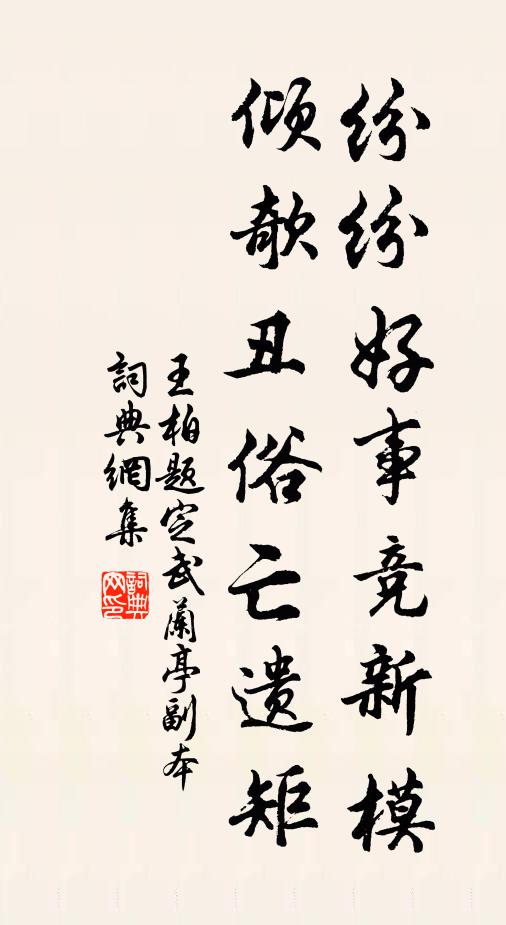 纷纷好事竞新模
倾欹丑俗亡遗矩
王柏题定武蘭亭副本
詞典網集
詞典網印